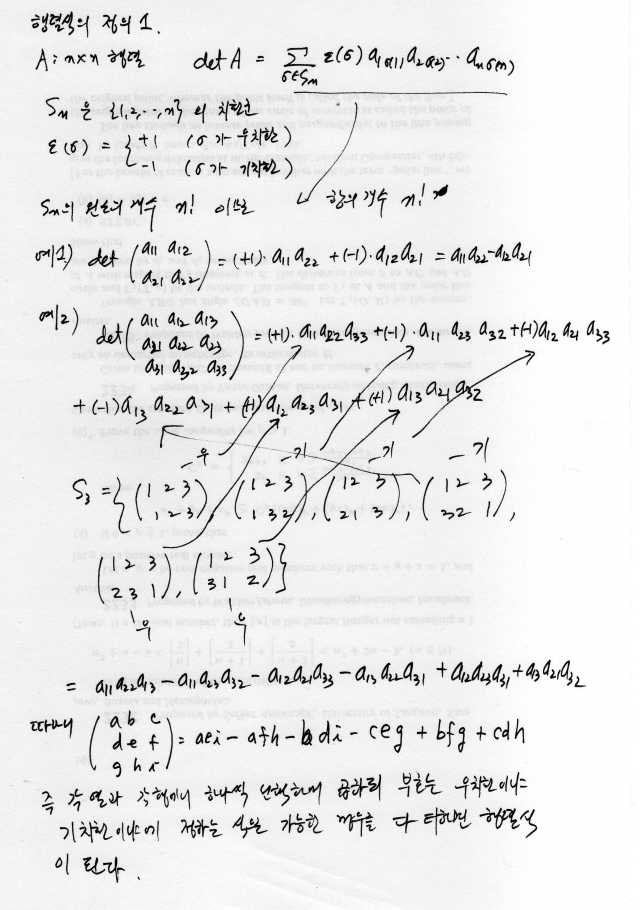 행렬식의 정의 1.
A : n×n 행렬 det A = Σ_{σ∈S_n} ε(σ) a_{1σ(1)} a_{2σ(2)} ⋯ a_{nσ(n)}
S_n 은 {1,2,⋯,n} 의 치환군
ε(σ) = { +1 (σ가 우치환)
-1 (σ가 기치환)
S_n의 원소의 개수 n! 이므로 항의 개수 n!
예1) det (a11 a12 / a21 a22) = (+1)·a11 a22 + (-1)·a12 a21 = a11a22 - a12a21
예2) det (a11 a12 a13 / a21 a22 a23 / a31 a32 a33) = (+1)·a11 a22 a33 + (-1)·a11 a23 a32 + (-1) a12 a21 a33
+ (-1) a13 a22 a31 + (+1) a12 a23 a31 + (+1) a13 a21 a32
우 기 기 기
S3 = { (1 2 3 / 1 2 3), (1 2 3 / 1 3 2), (1 2 3 / 2 1 3), (1 2 3 / 3 2 1),
(1 2 3 / 2 3 1), (1 2 3 / 3 1 2) }
우 우
= a11a22a13 - a11a23a32 - a12a21a33 - a13a22a31 + a12a23a31 + a13a21a32
따라서 (a b c / d e f / g h i) = aei - afh - bdi - ceg + bfg + cdh
즉 각 열과 각 행에서 하나씩 선택하여 곱하되 부호는 우치환이냐
기치환이냐에 정하는 식을 가능한 경우를 다 더하면 행렬식
이 된다.